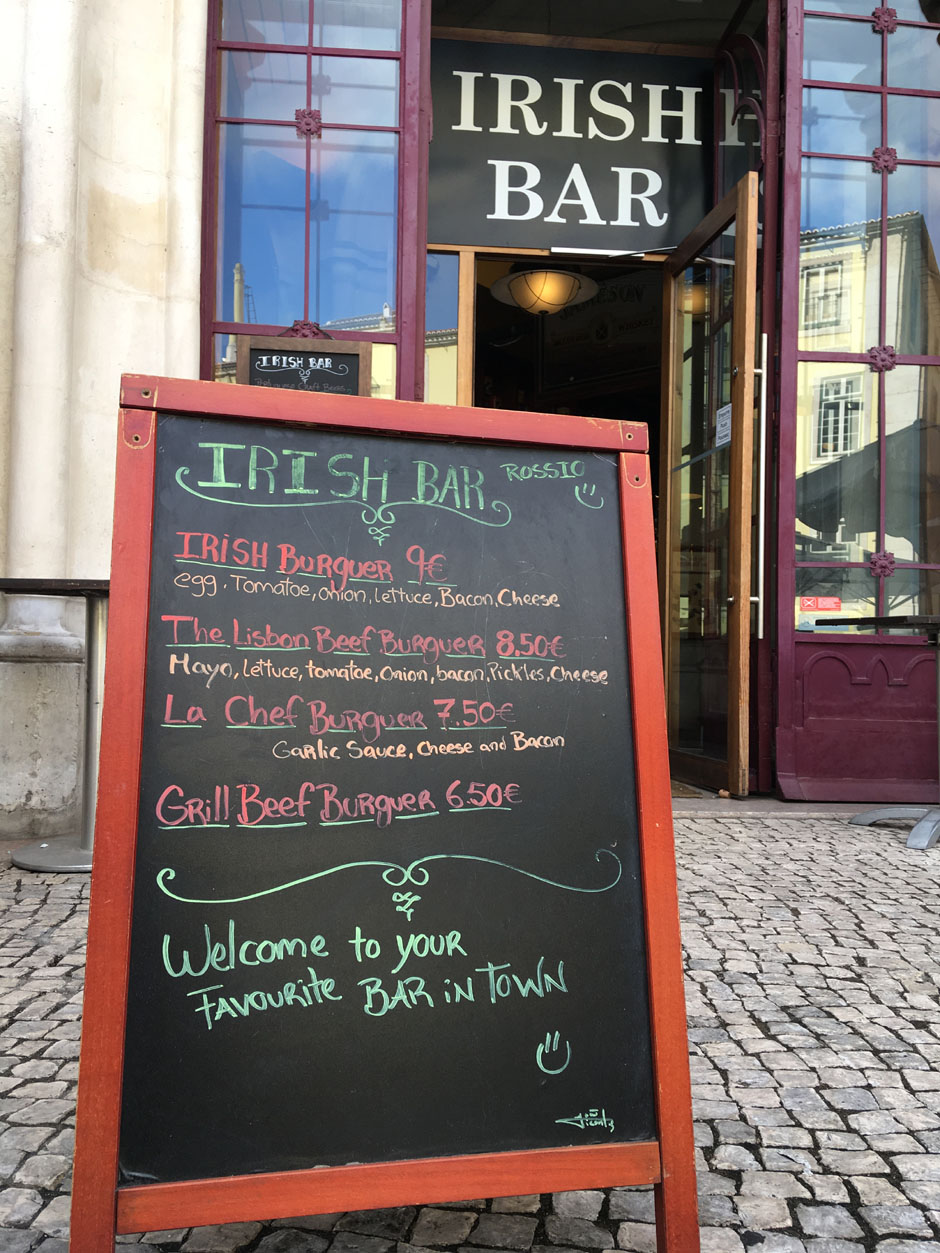 IRISH
BAR
JAMESON
WHISKEY
IRISH BAR
IRISH BAR ROSSIO
IRISH BURGUER 9€
egg, Tomatoe, onion, lettuce, Bacon, Cheese
The Lisbon Beef Burguer 8.50€
Mayo, lettuce, tomatoe, Onion, bacon, Pickles, Cheese
La Chef Burguer 7.50€
Garlic Sauce, Cheese and Bacon
Grill Beef Burguer 6.50€
Welcome to your
Favourite BAR in Town